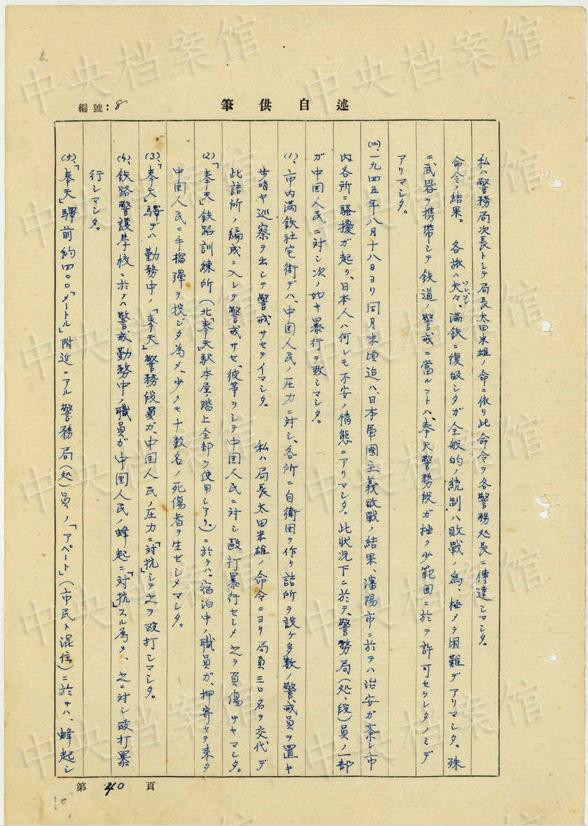 編號：8
筆供自述
私ハ警務局次長トシテ局長太田米雄ノ命ニ依リ此命令ヲ各警務処長ニ傳達シマシタ。
命令ノ結果。各旅ハ夫々、満鉄ニ復皈シタガ全般的ノ統制ハ敗戰ノ為、極メテ困難デアリマシタ。殊
ニ武器ヲ携帯シテ鉄道警戒ニ當ルコトハ、奉天警務段ガ極ク少範囲ニ於テ許可セラレタノミデ
アリマシタ。
(四)、一九四五年八月十八日ヨリ同月末頃迠ハ、日本軍國主義敗戰ノ結果、瀋陽市ニ於テハ治安ガ紊レ市
内各所ニ騒擾ガ起リ、日本人ハ何レモ不安ノ情態ニアリマシタ。此状況下ニ於テ、警務局(処、段)員ノ一部
ガ中国人民ニ対シ次ノ如キ暴行ヲ致シマシタ。
(1)、市内満鉄社宅街デハ、中国人民ノ圧力ニ対シ、各所ニ自衛団ヲ作リ詰所ヲ設ケ多数ノ警戒員ヲ置キ
歩哨ヤ巡察ヲ出シテ警戒サセテイマシタ。私ハ局長太田米雄ノ命令ニヨリ局員三〇名ヲ交代デ
此詰所ノ編成ニ入レテ警戒サセ、彼等ヲシテ中国人民ニ対シ毆打暴行セシメ之ヲ負傷サセマシタ。
(2)「奉天」鉄路訓練所(北奉天駅本屋ノ階上全部ヲ使用シアリ)ニ於テハ、宿泊中ノ職員ガ、押寄セ来タ
中国人民ニ手擂彈ヲ投ジタ為メ、少クモ十数名ノ死傷者ヲ生ゼシメマシタ。
(3)「奉天」驛デ、勤務中ノ「奉天」警務段員ガ、中国人民ノ圧力ニ「対抗」シテ之ヲ毆打シマシタ。
(4)、鉄路警護學校ニ於テハ警戒勤務中ノ職員ガ中国人民ノ蜂起ニ「対抗」スル為メ、之ニ対シ毆打暴
行シマシタ。
(5)、「奉天」驛前約四〇〇「メートル」附近ニアル警務局(処)員ノ「アパート」(市民ト混住)ニ於テハ、蜂起シ
第 40 頁
中央档案馆